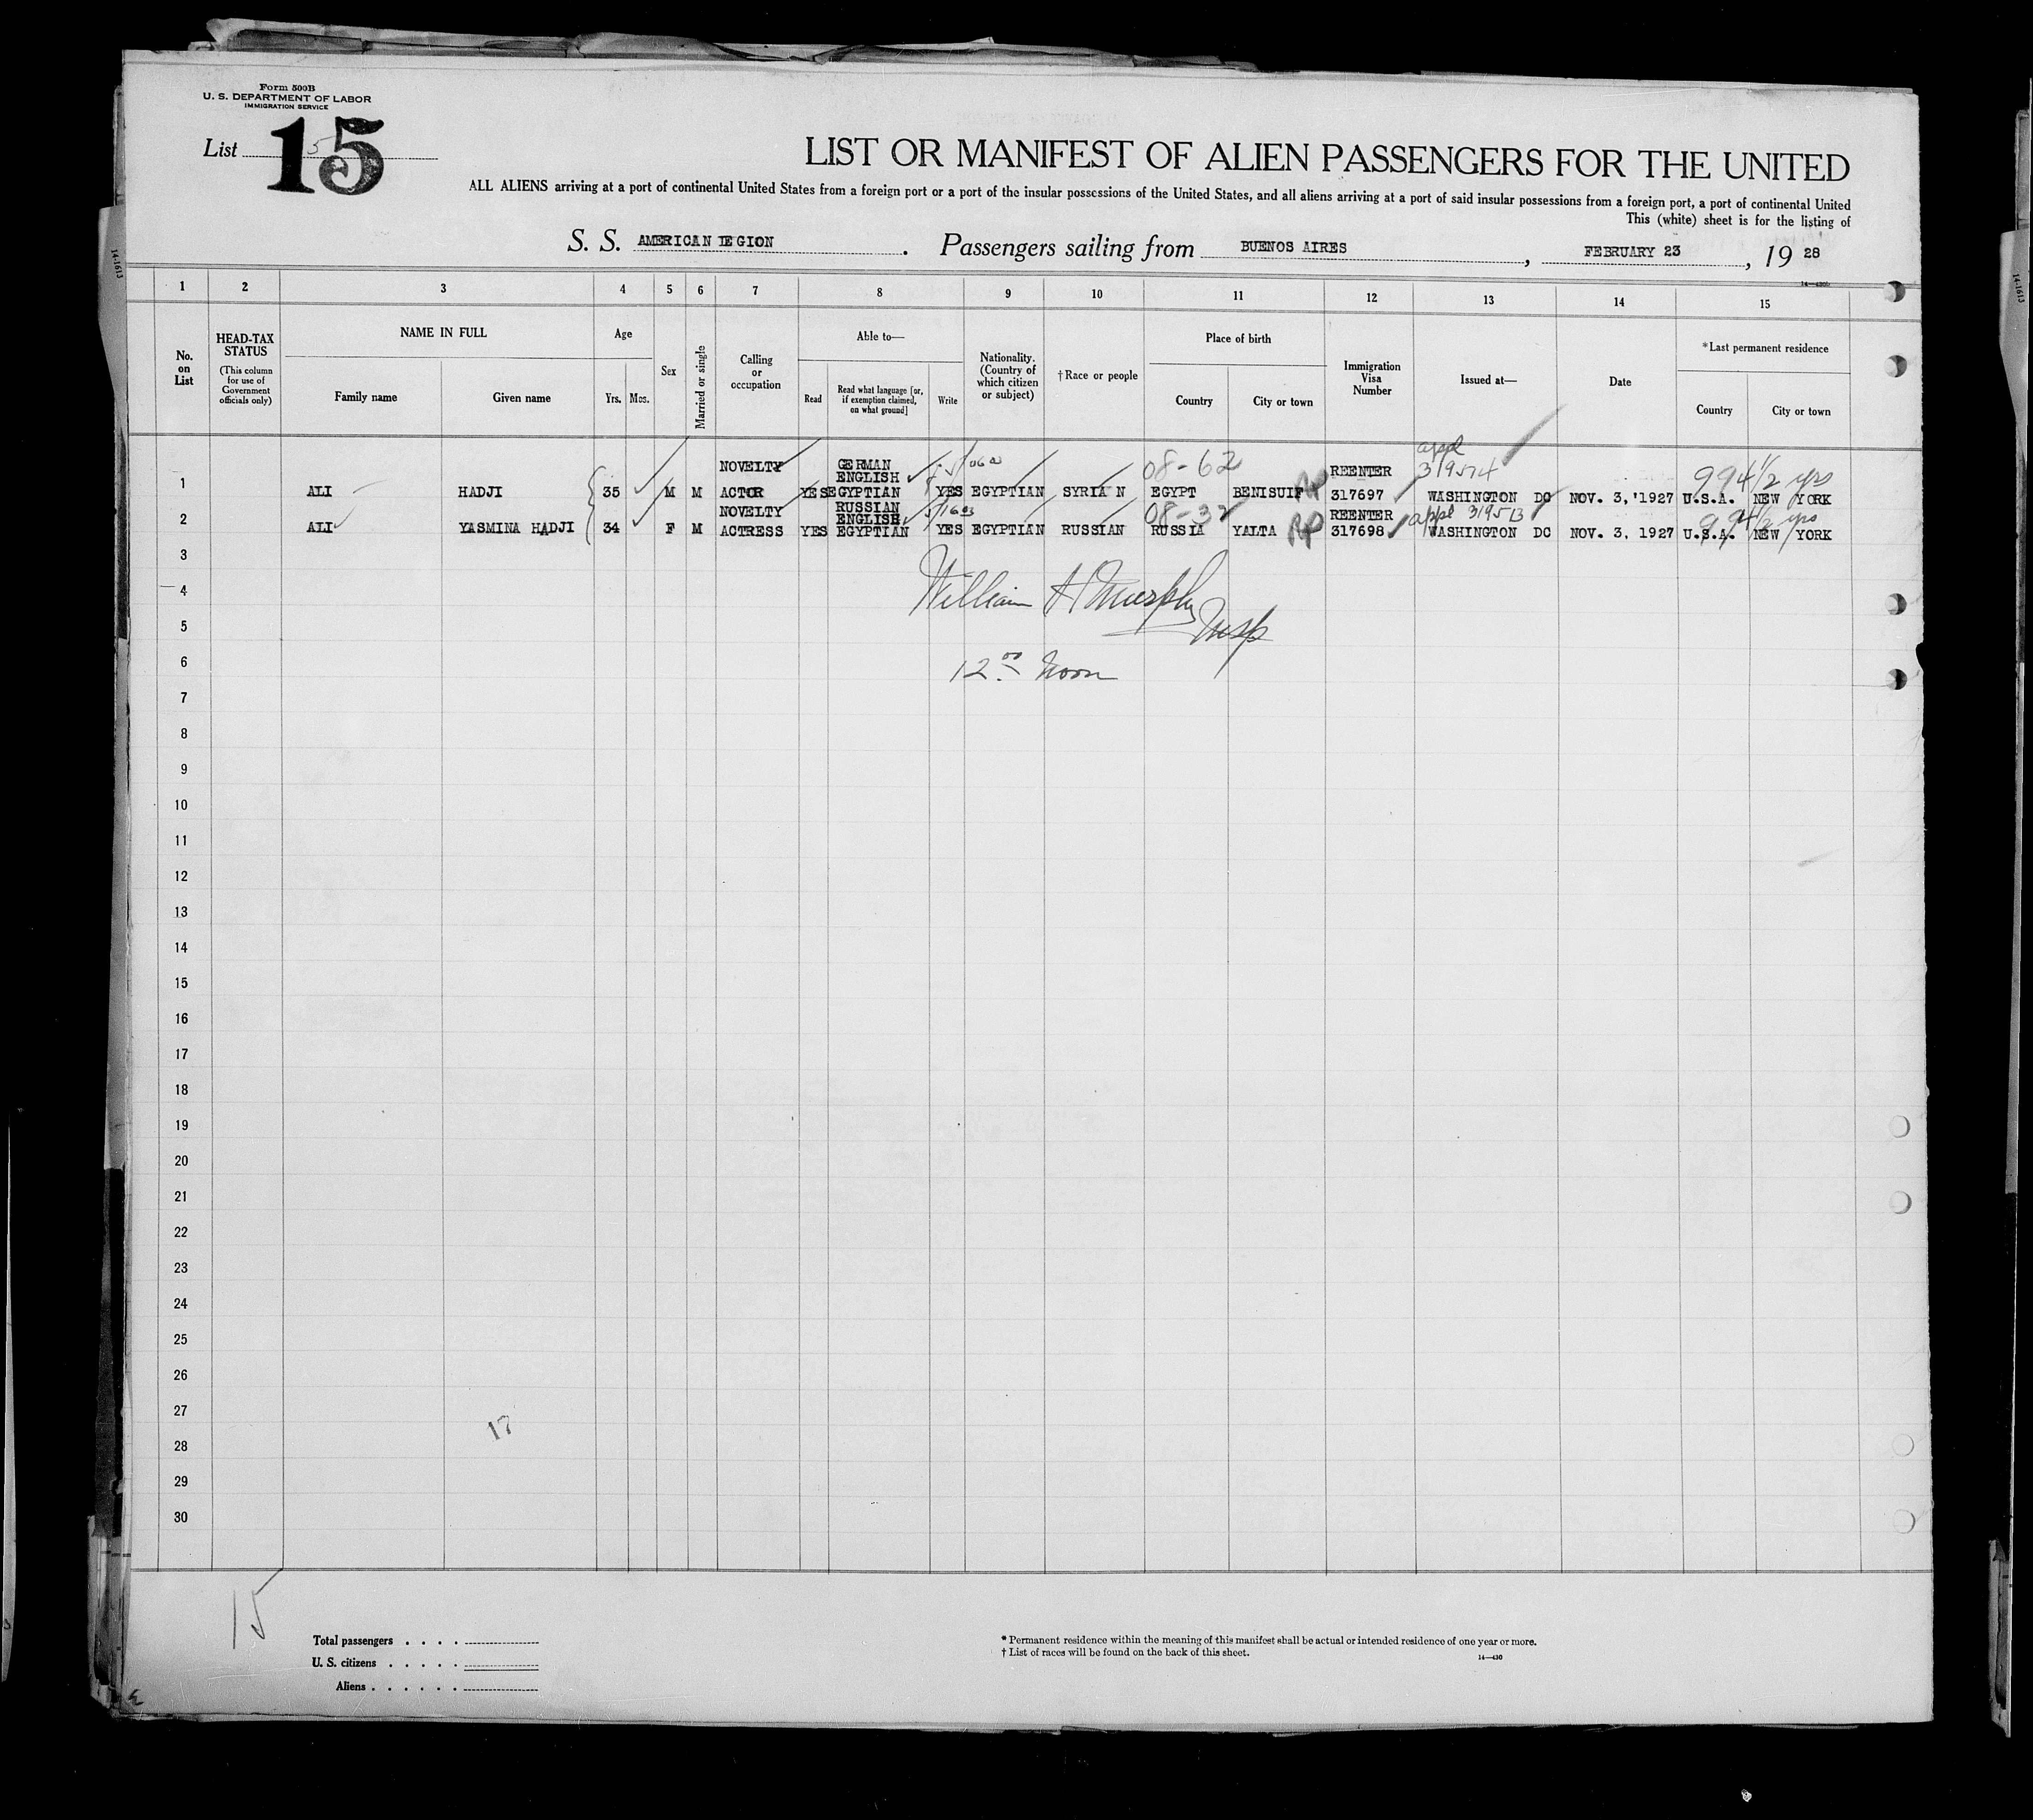 Form 500B
U. S. DEPARTMENT OF LABOR
IMMIGRATION SERVICE
List 5
15
LIST OR MANIFEST OF ALIEN PASSENGERS FOR THE UNITED
ALL ALIENS arriving at a port of continental United States from a foreign port or a port of the insular possessions of the United States, and all aliens arriving at a port of said insular possessions from a foreign port, a port of continental United
This (white) sheet is for the listing of
S. S. AMERICAN LEGION. Passengers sailing from BUENOS AIRES, FEBRUARY 23, 19 28
1 2 3 4 5 6 7 8 9 10 11 12 13 14 15
No. on List
HEAD-TAX STATUS
(This column for use of Government officials only)
NAME IN FULL
Family name Given name
Age
Yrs. Mos.
Sex
Married or single
Calling or occupation
Able to—
Read
Read what language [or, if exemption claimed, on what ground]
Write
Nationality. (Country of which citizen or subject)
†Race or people
Place of birth
Country City or town
Immigration Visa Number
Issued at—
Date
*Last permanent residence
Country City or town
appl
NOVELTY GERMAN 08-62 REENTER 319514 9 9 4 1/2 yrs
ENGLISH
1 ALI HADJI 35 M M ACTOR YES EGYPTIAN YES EGYPTIAN SYRIAN EGYPT BENISUIF RP 317697 WASHINGTON DC NOV. 3, '1927 U.S.A. NEW YORK
NOVELTY RUSSIAN 08-32 REENTER appl 319513 9 9 4 1/2 yrs
ENGLISH
2 ALI YASMINA HADJI 34 F M ACTRESS YES EGYPTIAN YES EGYPTIAN RUSSIAN RUSSIA YALTA RP 317698 WASHINGTON DC NOV. 3, 1927 U.S.A. NEW YORK
3
4 William H Murphy
5 Insp
6 12 00 Noon
7
8
9
10
11
12
13
14
15
16
17
18
19
20
21
22
23
24
25
26
27
17
28
29
30
15
Total passengers . . . .
U. S. citizens . . . . .
Aliens . . . . . .
* Permanent residence within the meaning of this manifest shall be actual or intended residence of one year or more.
† List of races will be found on the back of this sheet.
14—430